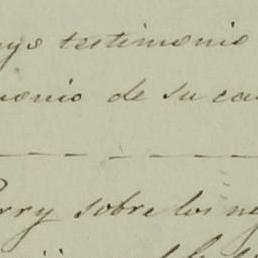 testimonio
monio de su ca
erry sobre los ne